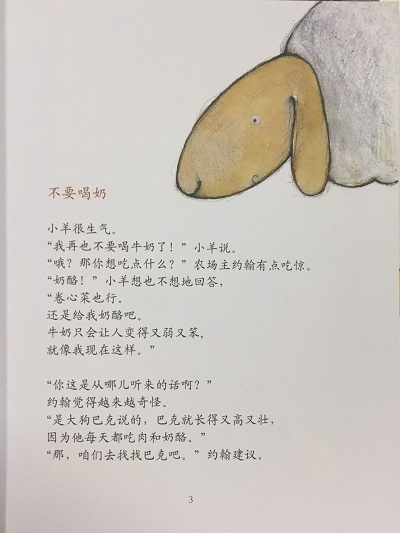 不要喝奶
小羊很生气。
“我再也不要喝牛奶了！”小羊说。
“哦？那你想吃点什么？”农场主约翰有点吃惊。
“奶酪！”小羊想也不想地回答，
“卷心菜也行。
还是给我奶酪吧。
牛奶只会让人变得又弱又笨，
就像我现在这样。”
“你这是从哪儿听来的话啊？”
约翰觉得越来越奇怪。
“是大狗巴克说的，巴克就长得又高又壮，
因为他每天都吃肉和奶酪。”
“那，咱们去找找巴克吧。”约翰建议。
3